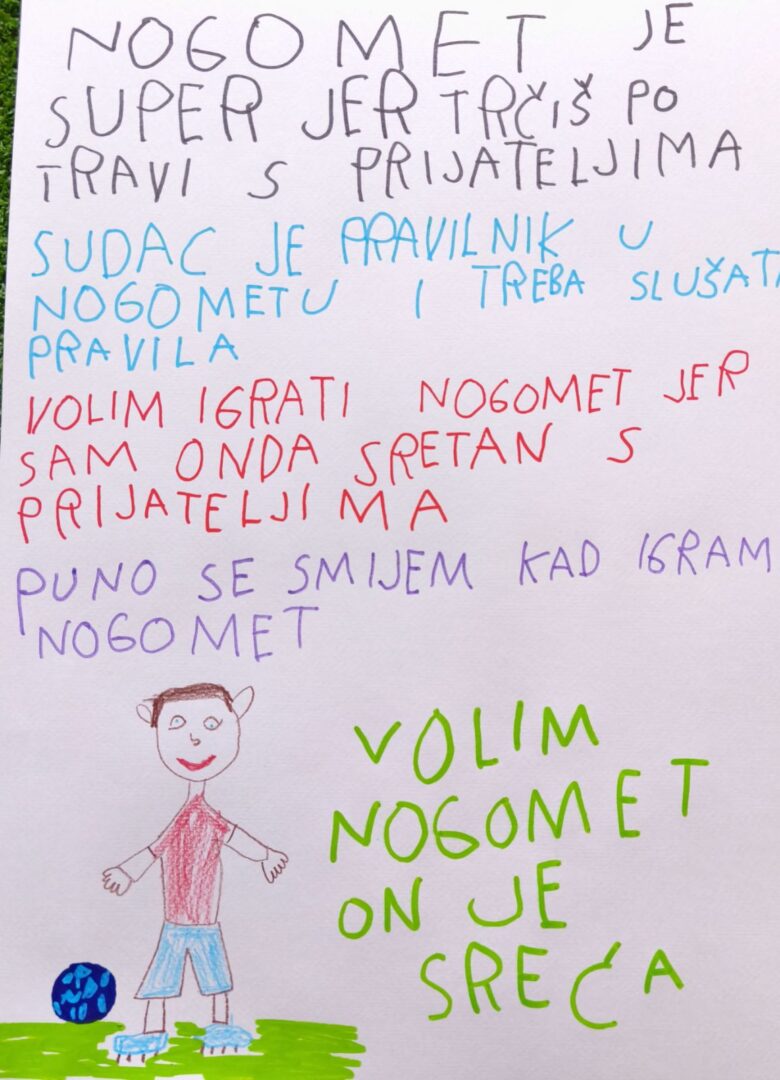 NOGOMET JE
SUPER JER TRČIŠ PO
TRAVI S PRIJATELJIMA
SUDAC JE PRAVILNIK U
NOGOMETU I TREBA SLUŠATI
PRAVILA
VOLIM IGRATI NOGOMET JER
SAM ONDA SRETAN S
PRIJATELJIMA
PUNO SE SMIJEM KAD IGRAM
NOGOMET
VOLIM
NOGOMET
ON JE
SREĆA